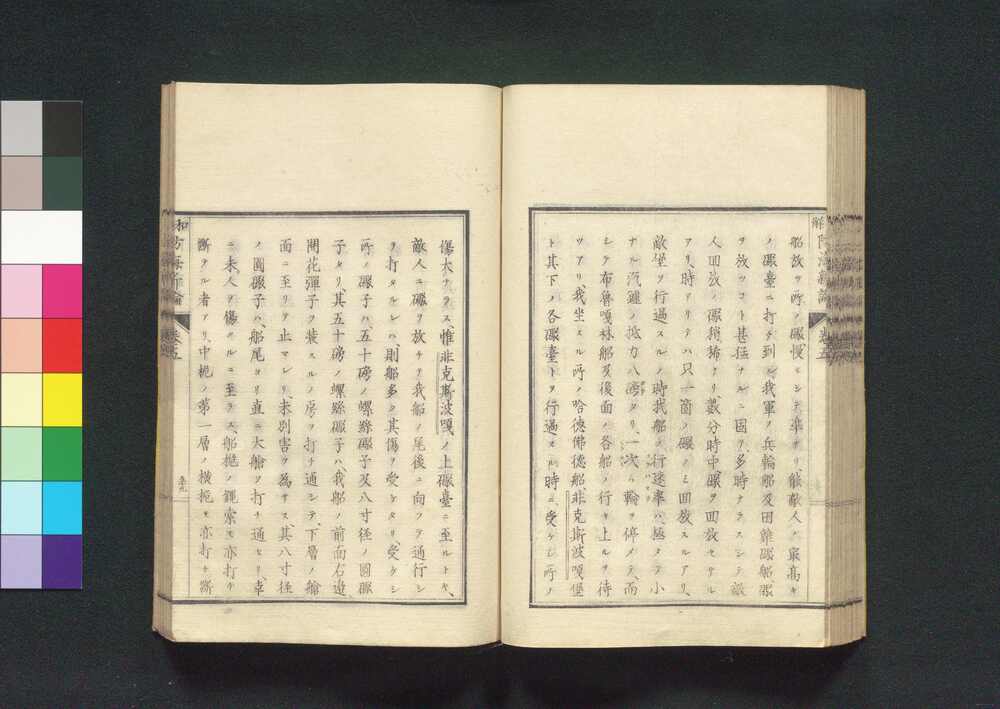 船放ツ所ノ礮慢ニシテ準ナリ、能敵人ノ最高キ
ノ礮臺ニ打チ到ル、我軍ノ兵輪船及田雞礮船礮
ヲ放ツコト甚猛ナルニ因リ、多時ナラスシテ敵
人回放ノ礮稍稀ナリ、數分時中礮ヲ回放セサル
アリ、時アリテハ只一箇ノ礮ノミ回放スルアリ、
敵堡ヲ行過スルノ時我船ノ行速率ハ極メテ小
ナル汽鍾ノ抵力八磅ナリ、一次ハ輪ヲ停メテ、而
シテ布魯嘎林船及後面ノ各船ノ行キ上ルヲ待
ツアリ、我坐スル所ノ哈德佛德船、非克斯波嘎堡
ト其下ノ各礮臺トヲ行過スル時ニ、受ケシ所ノ
傷大ナラス、惟非克斯波嘎ノ上礮臺ニ至ルトキ、
敵人ニ礮ヲ放チリ我船ノ尾後ニ向フテ通行シ
ヲ打タルレハ、則船多ク其傷ヲ受ケタリ、受ケシ
所ノ礮子ハ五十磅ノ螺絲礮子及八寸徑ノ圓礮
子ナリ、其五十磅ノ螺絲礮子ハ、我船ノ前面右邊
開花彈子ヲ裝スルノ房ヲ打チ通シテ、下層ノ艙
面ニ至リテ止マレリ、未別害ヲ為サス、其八寸徑
ノ圓礮子ハ、船尾ヨリ直ニ大艙ヲ打チ通セリ、幸
ニ未人ヲ傷クルニ至ラス、船梔ノ鐵索モ亦打チ
斷タル者アリ、中桅ノ第一層ノ橫桅モ亦打チ斷
卷五